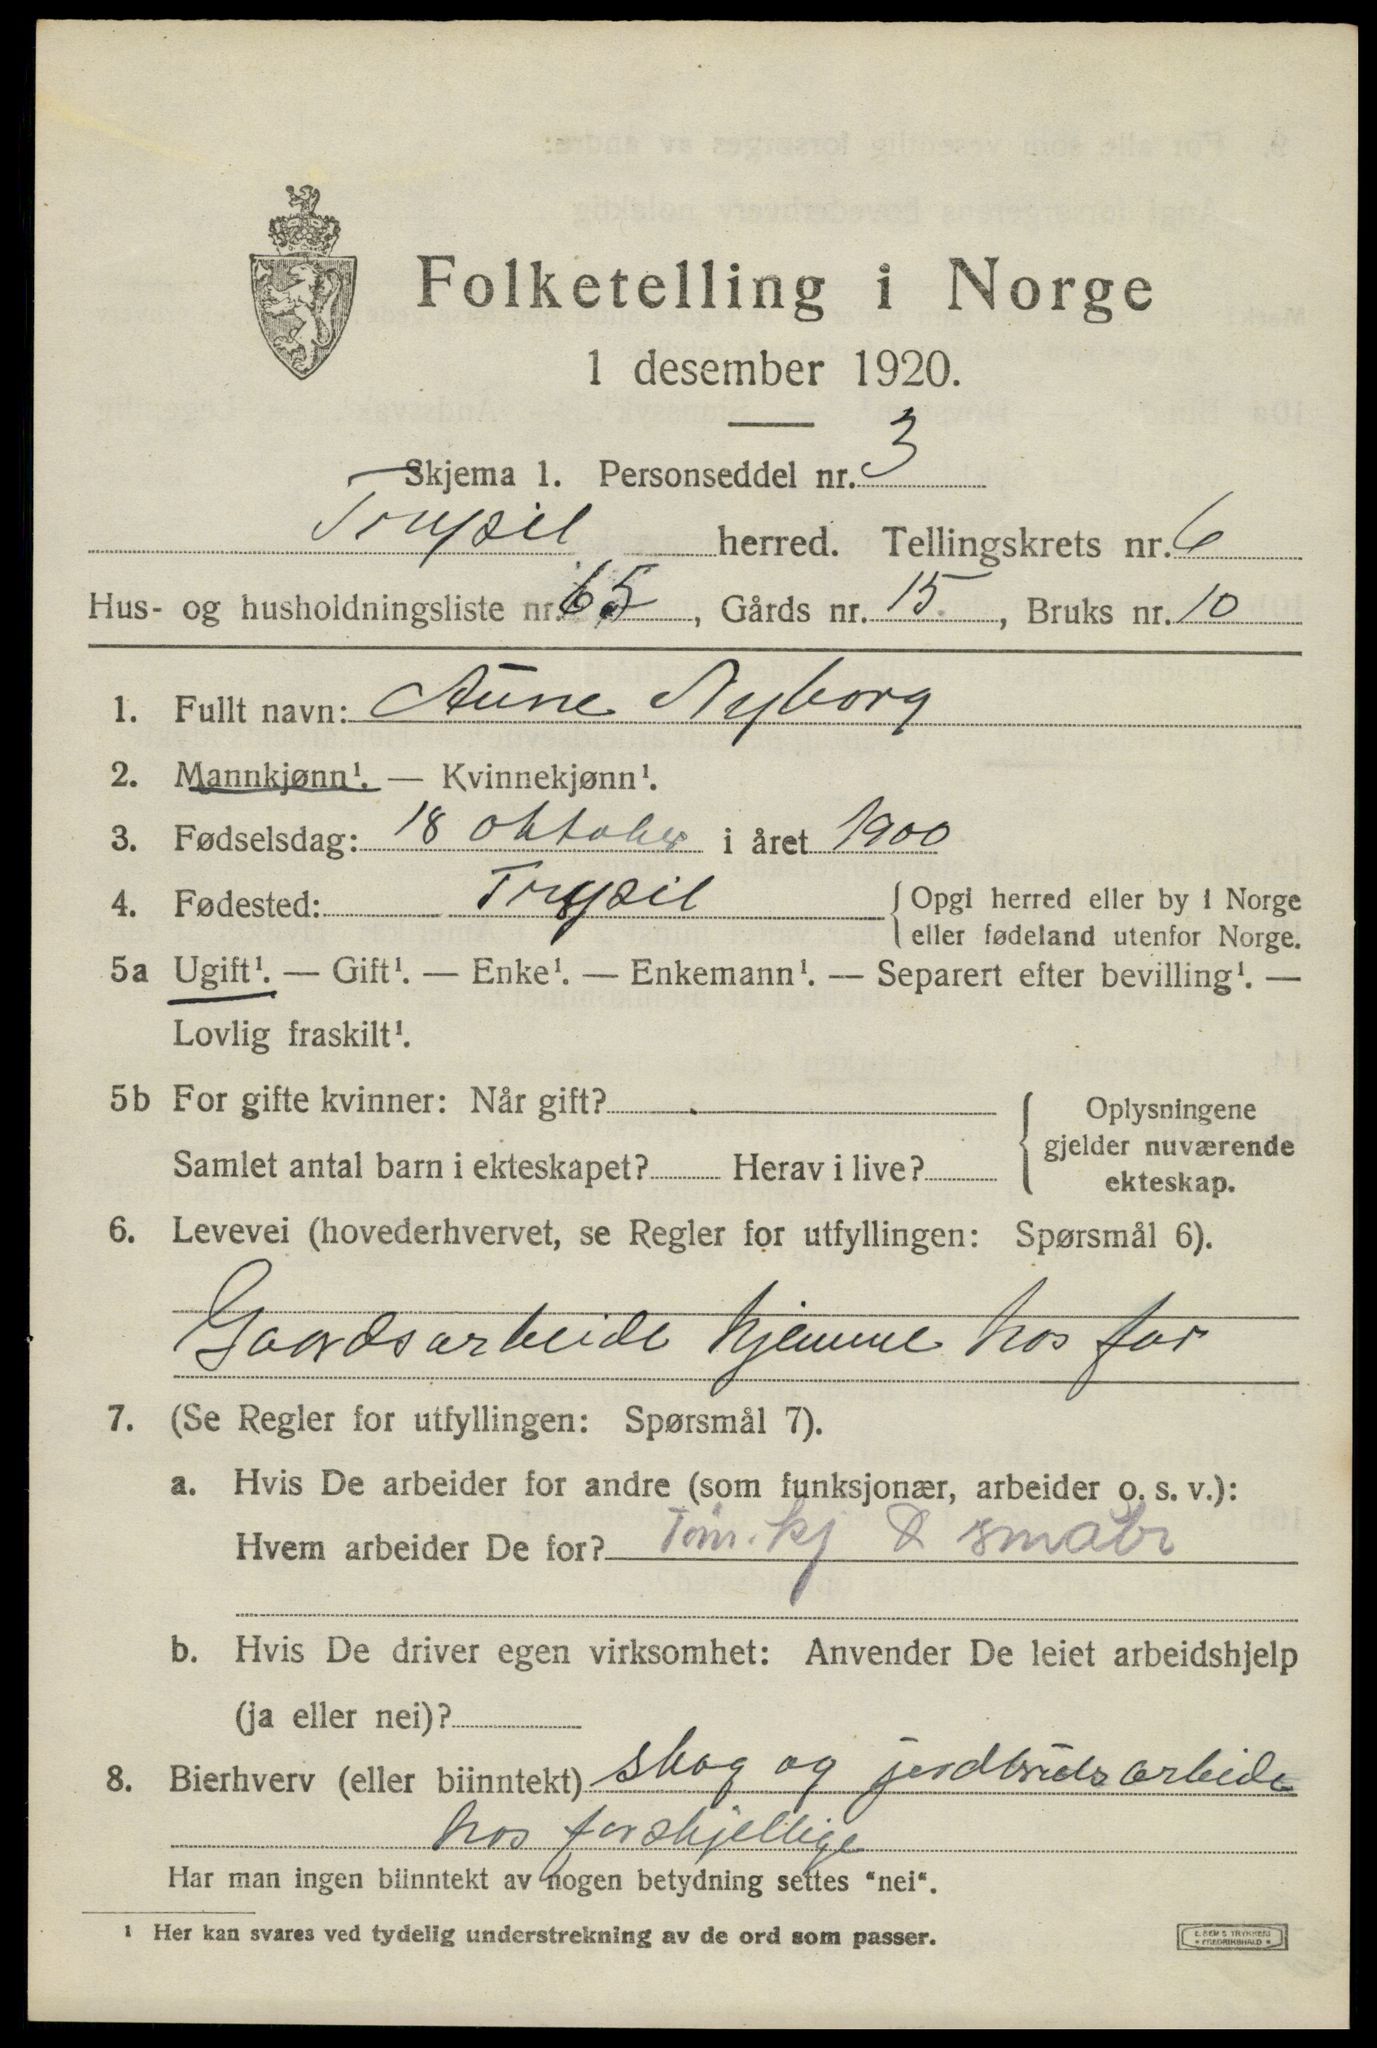 Folketelling i Norge
1 desember 1920.
Skjema 1. Personseddel nr. 3
Trysil herred. Tellingskrets nr. 6
Hus- og husholdningsliste nr. 65, Gårds nr. 15, Bruks nr. 10
1. Fullt navn: Aune Nyborg
2. Mannkjønn¹. — Kvinnekjønn¹.
3. Fødselsdag: 18 oktober i året 1900
4. Fødested: Trysil { Opgi herred eller by i Norge
eller fødeland utenfor Norge.
5a Ugift¹. — Gift¹. — Enke¹. — Enkemann¹. — Separert efter bevilling¹. —
Lovlig fraskilt¹.
5b For gifte kvinner: Når gift? { Oplysningene
gjelder nuværende
Samlet antal barn i ekteskapet? Herav i live?
ekteskap.
6. Levevei (hovederhvervet, se Regler for utfyllingen: Spørsmål 6).
Gaardsarbeide hjemme hos far
7. (Se Regler for utfyllingen: Spørsmål 7).
a. Hvis De arbeider for andre (som funksjonær, arbeider o. s. v.):
Hvem arbeider De for? Töm.kj & småbr
b. Hvis De driver egen virksomhet: Anvender De leiet arbeidshjelp
(ja eller nei)?
8. Bierhverv (eller biinntekt) skog og jordbruksarbeide
hos forskjellige
Har man ingen biinntekt av nogen betydning settes "nei".
¹ Her kan svares ved tydelig understrekning av de ord som passer.
E. SEM'S TRYKKERI
FREDRIKSHALD